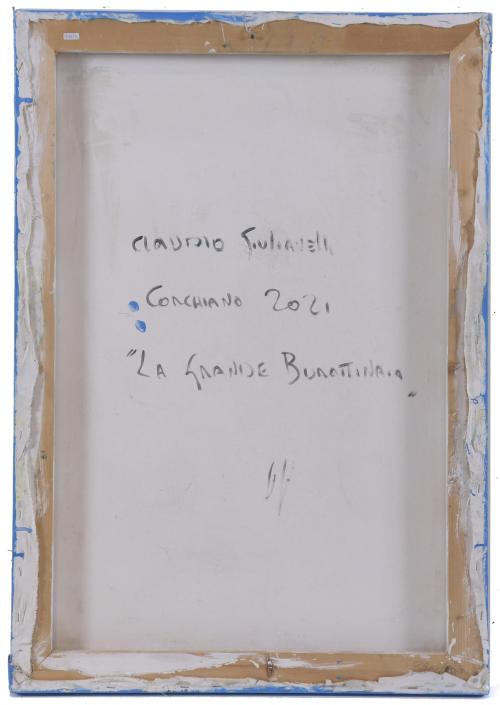 CLAUDIO GIULIANELLI
CORCHIANO 2021
"LA GRANDE BURATTINAIA"